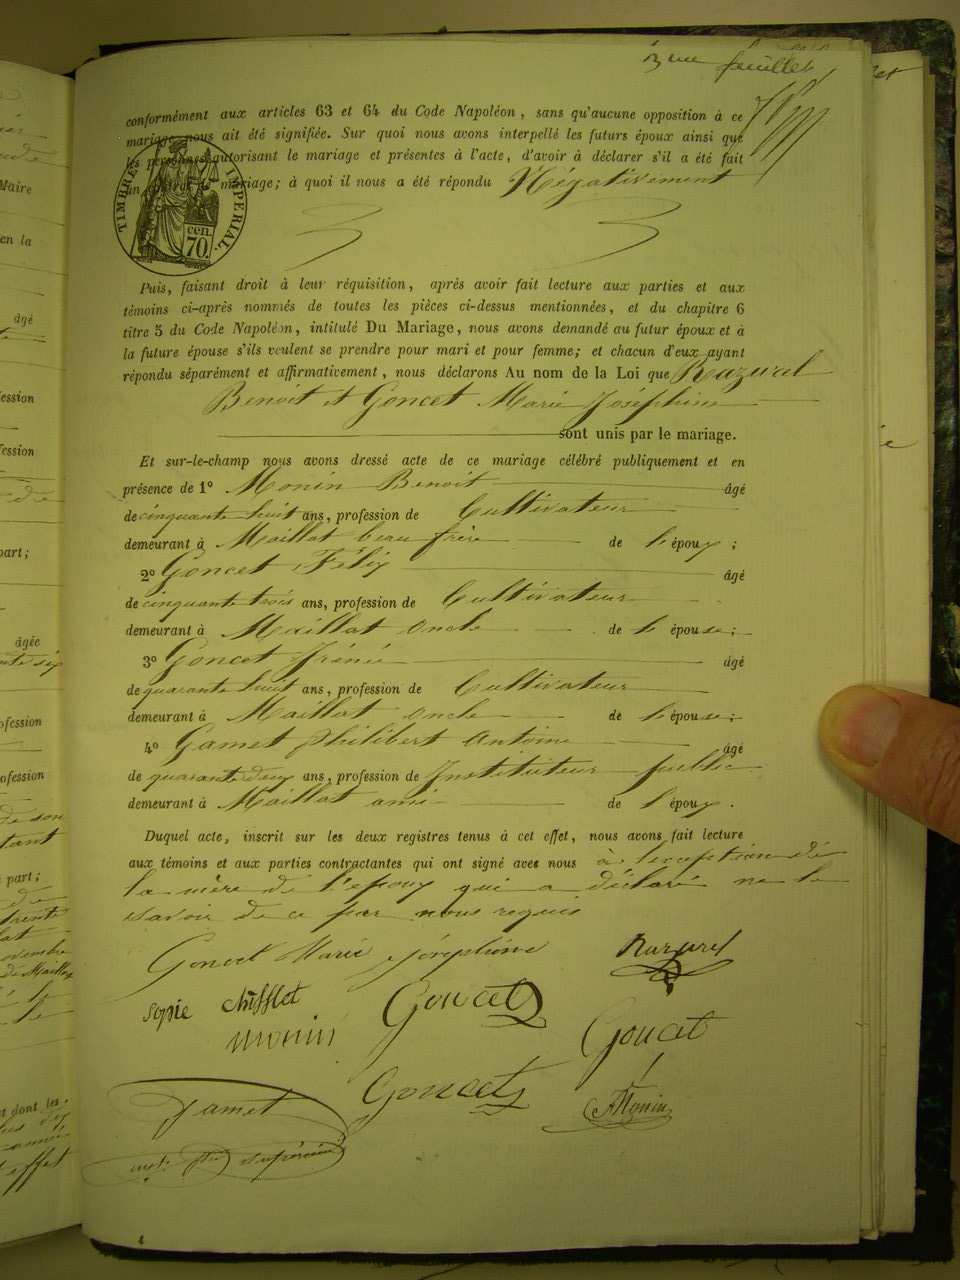 3me feuillet
conformément aux articles 63 et 64 du Code Napoléon, sans qu'aucune opposition à ce
mariage nous ait été signifiée. Sur quoi nous avons interpellé les futurs époux ainsi que
les personnes autorisant le mariage et présentes à l'acte, d'avoir à déclarer s'il a été fait
un contrat de mariage; à quoi il nous a été répondu Négativement
TIMBRE IMPÉRIAL.
cen.
70.
Puis, faisant droit à leur réquisition, après avoir fait lecture aux parties et aux
témoins ci-après nommés de toutes les pièces ci-dessus mentionnées, et du chapitre 6
titre 5 du Code Napoléon, intitulé Du Mariage, nous avons demandé au futur époux et à
la future épouse s'ils veulent se prendre pour mari et pour femme; et chacun d'eux ayant
répondu séparément et affirmativement, nous déclarons Au nom de la Loi que Razurel
Benoit et Goncet Marie Joséphine
sont unis par le mariage.
Et sur-le-champ nous avons dressé acte de ce mariage célébré publiquement et en
présence de 1° Monin Benoit âgé
de cinquante huit ans, profession de Cultivateur
demeurant à Maillat beau frère de l'époux;
2° Goncet Félix âgé
de cinquante trois ans, profession de Cultivateur
demeurant à Maillat oncle de l'épouse;
3° Goncet Irénée âgé
de quarante huit ans, profession de Cultivateur
demeurant à Maillat oncle de l'épouse;
4° Gamet Philibert Antoine âgé
de quarante deux ans, profession de Instituteur public
demeurant à Maillat ami de l'époux.
Duquel acte, inscrit sur les deux registres tenus à cet effet, nous avons fait lecture
aux témoins et aux parties contractantes qui ont signé avec nous à l'exception de
la mère de l'époux qui a déclaré ne le
savoir de ce par nous requis
Goncet Marie Joséphine Razurel
sopie chifflet Goncet
monin Goncet
Goncet
Gamet Monin